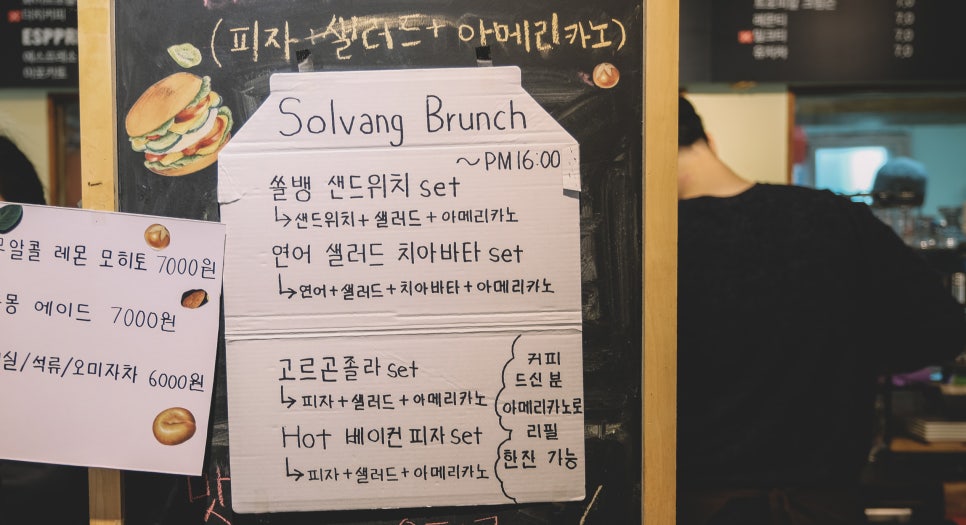 (피자+샐러드+아메리카노)
Solvang Brunch
~PM16:00
쏠뱅 샌드위치 set
↳샌드위치+샐러드+아메리카노
연어 샐러드 치아바타 set
↳연어+샐러드+치아바타+아메리카노
고르곤졸라 set
↳피자+샐러드+아메리카노
Hot 베이컨 피자 set
↳피자+샐러드+아메리카노
커피
드신 분
아메리카노로
리필
한잔 가능
알콜 레몬 모히토 7000원
몽 에이드 7000원
실/석류/오미자차 6000원
더치커피
ESPPR
에스프레소
7.0
7.0
7.0